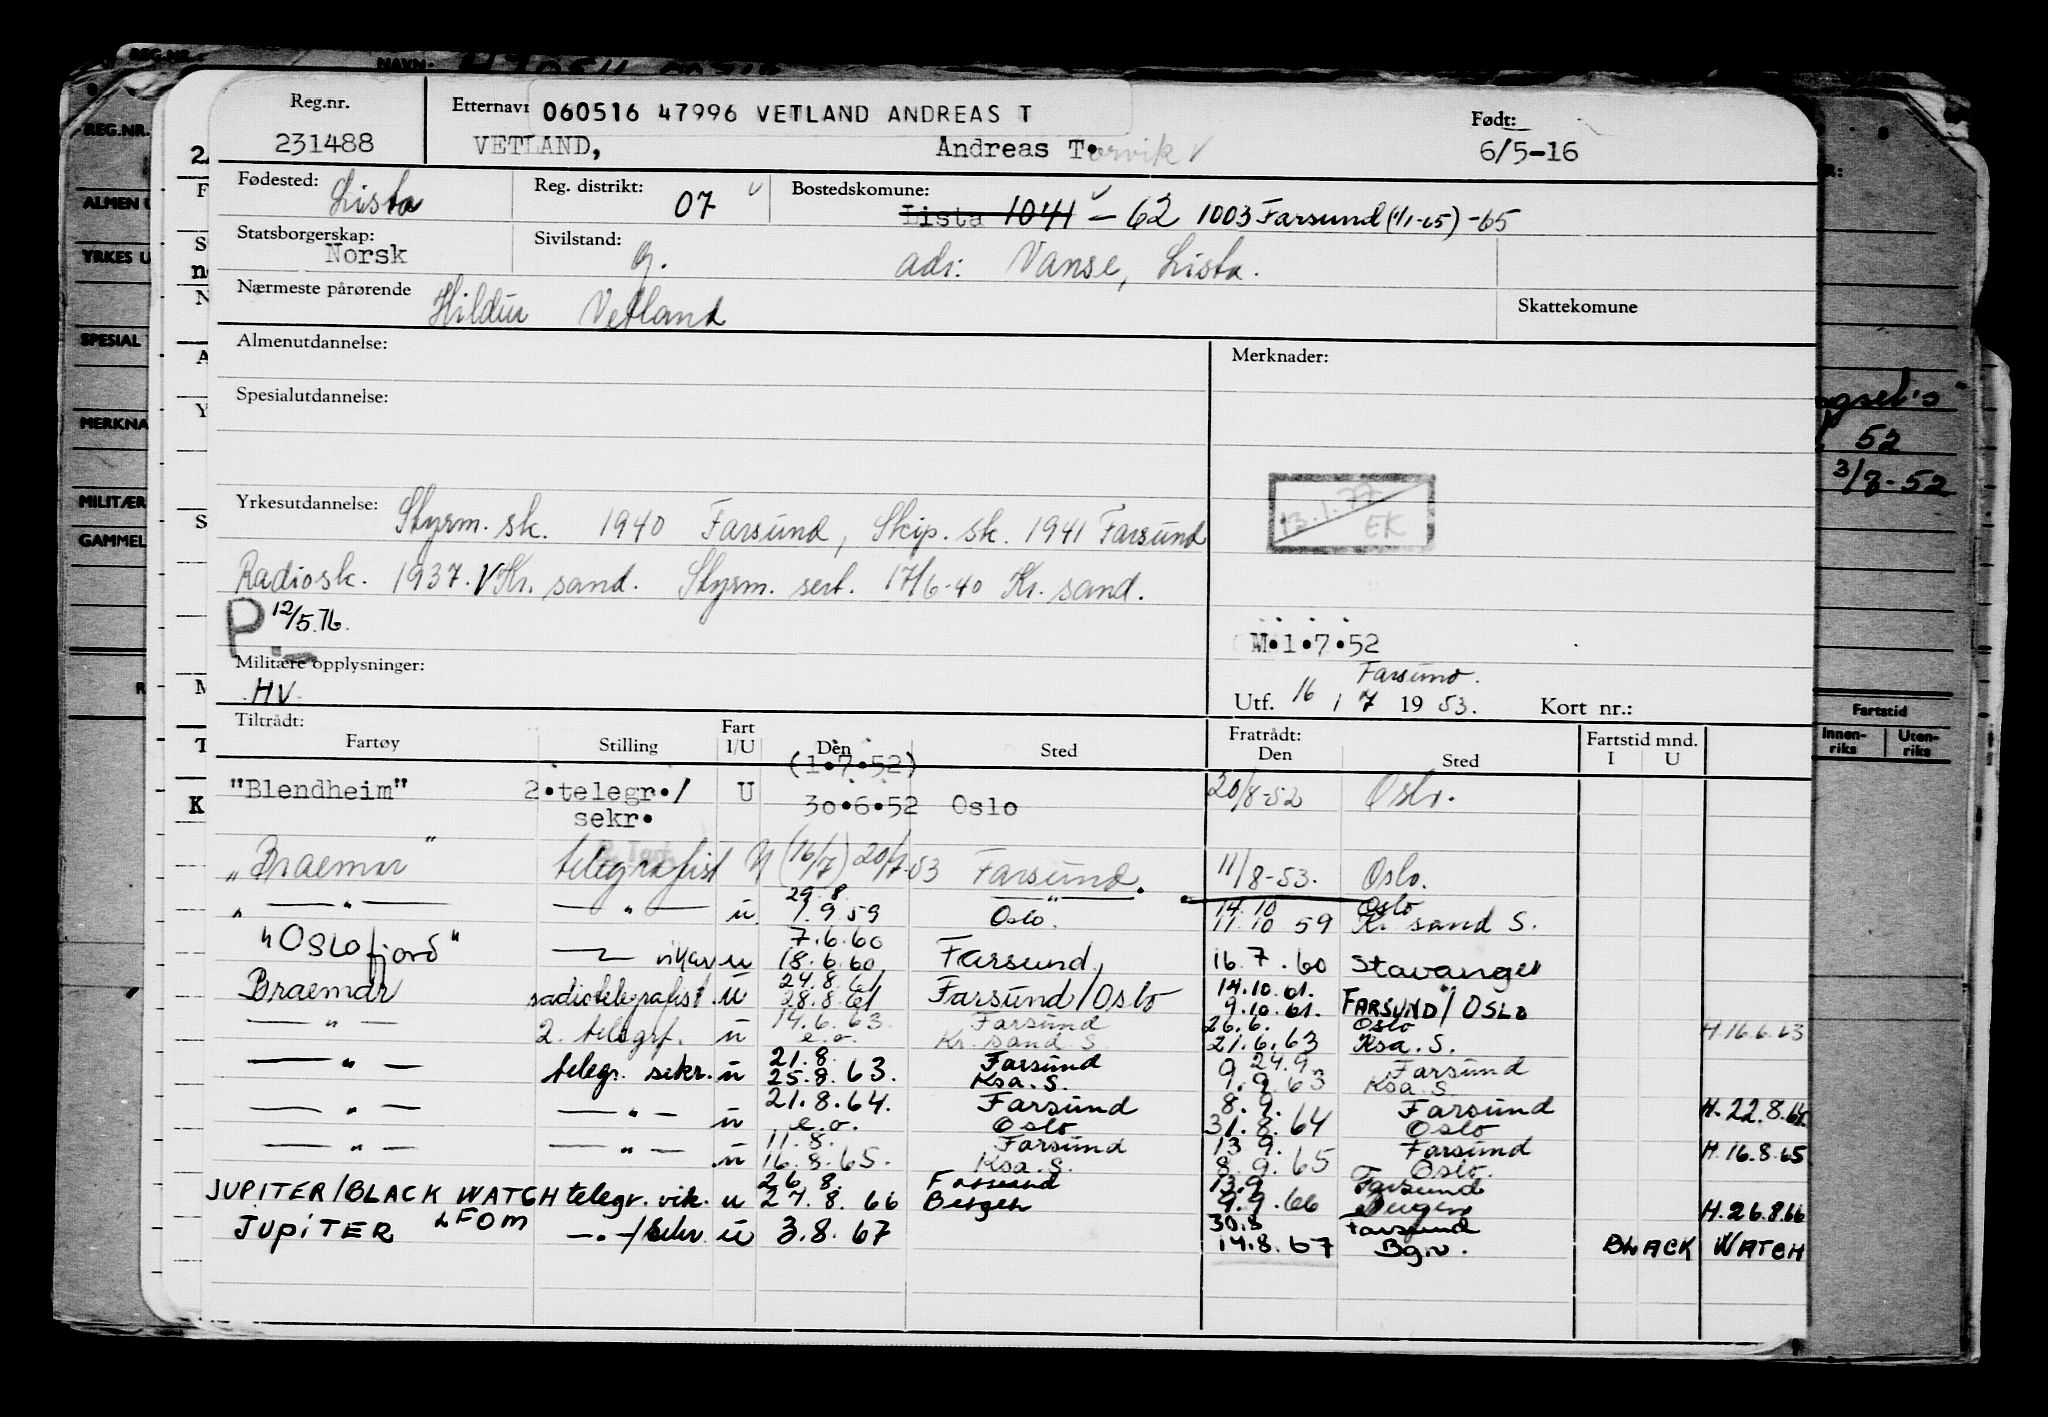 Reg.nr. Etternavn 060516 47996 VETLAND ANDREAS T Født:
231488 VETLAND, Andreas T.orvik 6/5-16
Fødested: Lista Reg. distrikt: 07 Bostedskomune: Lista 1041 - 62 1003 Farsund (1/1-65) -65
Statsborgerskap: Norsk Sivilstand: g. adr: Vanse, Lista.
Nærmeste pårørende Hildur Vetland Skattekomune
Almenutdannelse: Merknader:
Spesialutdannelse:
13.1.77 EK
Yrkesutdannelse: Styrm. sk. 1940 Farsund, Skip. sk. 1941 Farsund
Radiosk. 1937. Kr. sand. Styrm. sert. 17/6-40 Kr. sand.
P 12/5.76.
M.1.7.52
Militære opplysninger:
HV Farsund.
Utf. 16 / 7 19 53. Kort nr.:
Tiltrådt: Fart Fratrådt: Fartstid mnd.
Fartøy Stilling I/U Den Sted Den Sted I U
(1.7.52)
"Blendheim" 2.telegr./ U 30.6.52 Oslo 20/8-52 Oslo.
sekr.
"Braemar" telegrafist U (16/7) 20/7-53 Farsund. 11/8-53. Oslo.
29.8. 14.10 Oslo
" — " — — " — u. 1.9 59 Oslo. 11.10 59 Kr. sand S.
7.6.60
"Oslofjord" — " — vikar u 18.6.60 Farsund, 16.7.60 Stavanger
24.8.61 14.10.61.
Braemar radiotelegrafist. u 28.8.61 Farsund/Oslo 9.10.61. FARSUND/OSLO
14.6.63. Farsund 26.6. Oslo
— " — 2. telegrf. u e.o. Kr. sand S. 21.6.63 Ksa. S. H.16.6.63
21.8. Farsund 24.9. Farsund
— " — telegr. sekr. u 25.8.63. Ksa. S. 9.9.63 Ksa. S.
21.8.64. Farsund 8.9. Farsund
— " — — " — u e.o. Oslo 31.8.64 Oslo H.22.8.64.
11.8. Farsund 13.9. Farsund
— " — — " — u 16.8.65. Ksa. S. 8.9.65 Oslo. H.16.8.65
26.8. Farsund 13.9 Farsund
JUPITER/BLACK WATCH telegr. vik. u 27.8.66 Bergen 9.9.66 Bergen H.26.8.66
30.8 Farsund
JUPITER LFOM — " —/sekr u 3.8.67 14.8.67 Bgn. BLACK WATCH
REG.NR.
ALMEN U
YRKES U
SPESIAL
MERKNA
MILITÆR
GAMMEL
NAVN:
52
3/8-52
Fartstid
Innen-riks Uten-riks